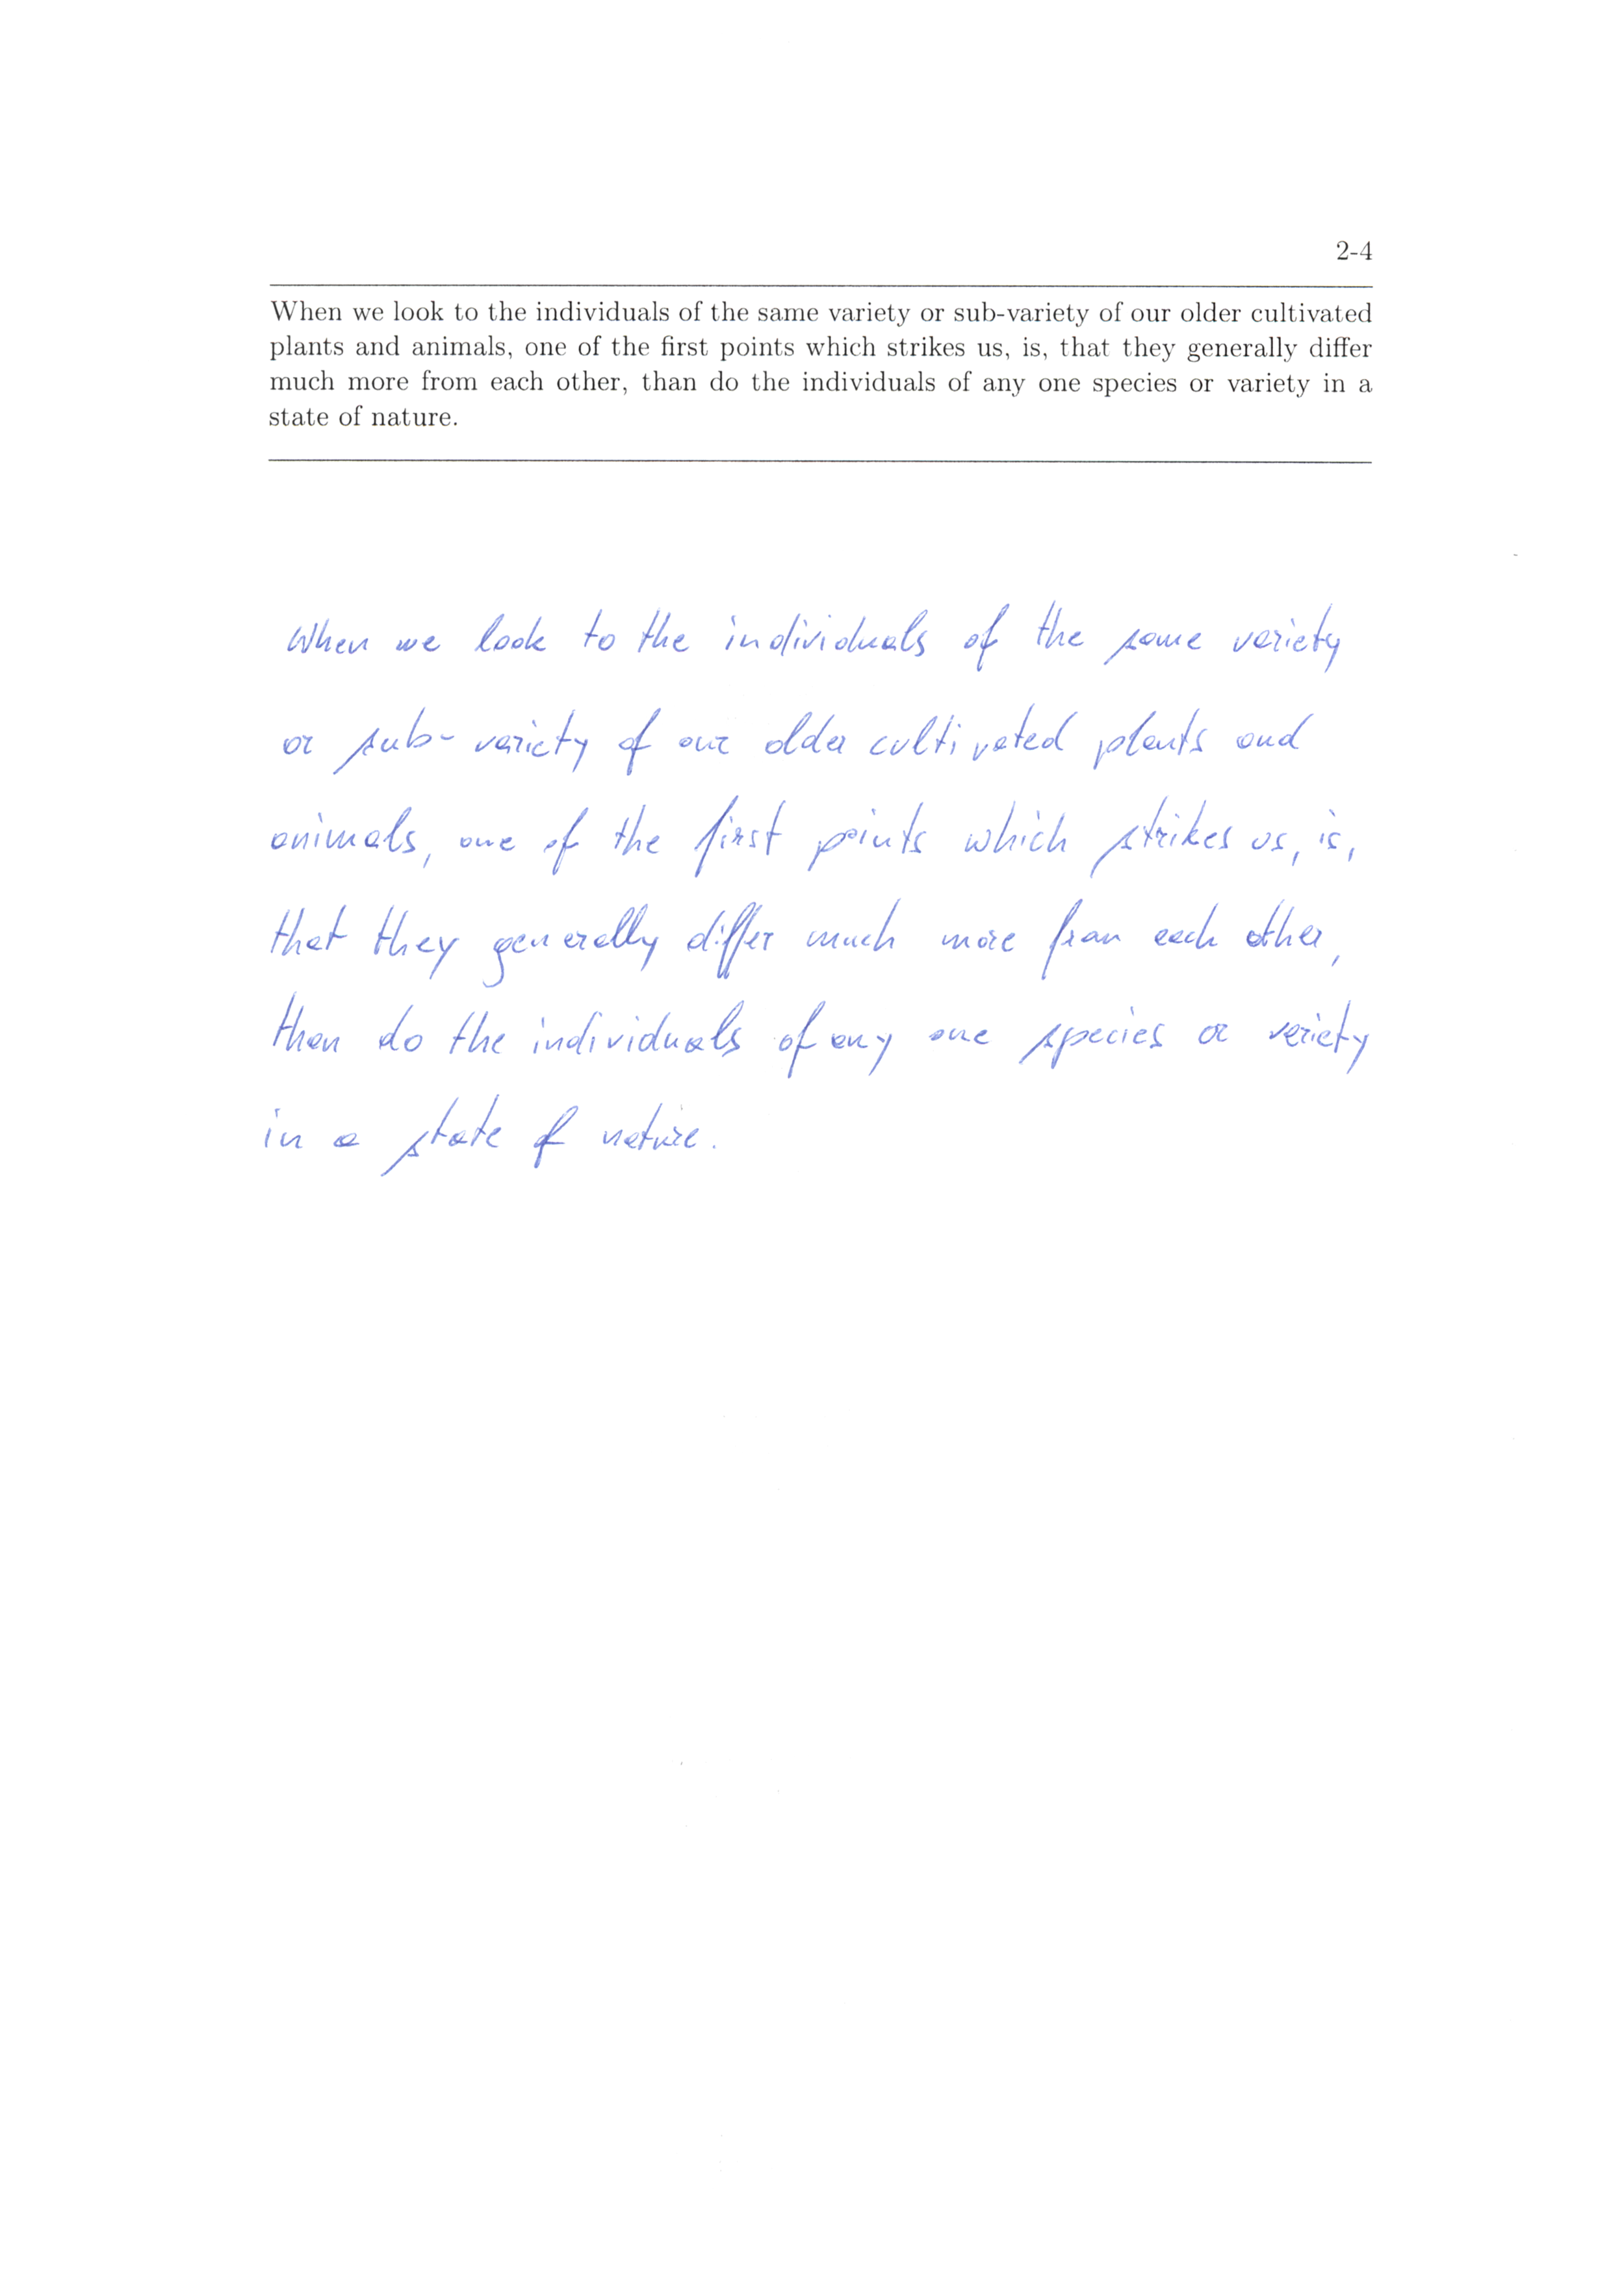 2-4
When we look to the individuals of the same variety or sub-variety of our older cultivated
plants and animals, one of the first points which strikes us, is, that they generally differ
much more from each other, than do the individuals of any one species or variety in a
state of nature.
When we look to the individuals of the same variety
or sub-variety of our older cultivated plants and
animals, one of the first points which strikes us, is,
that they generally differ much more from each other,
than do the individuals of any one species or variety
in a state of nature.